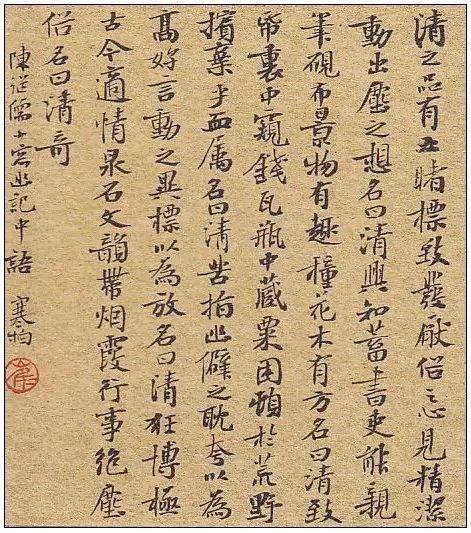 清之品有五睹標致發厭俗之心見精潔
動出塵之想名曰清興知蓄書史能親
筆硯布景物有趣種花木有方名曰清致
帋裹中窺錢瓦瓶中藏粟困頓於荒野
擯棄乎血屬名曰清苦指幽僻之耽夸以為
高好言動之異標以為放名曰清狂博極
古今適情泉石文韻帶烟霞行事絕塵
俗名曰清奇
陳繼儒小窗幽記中語 寒